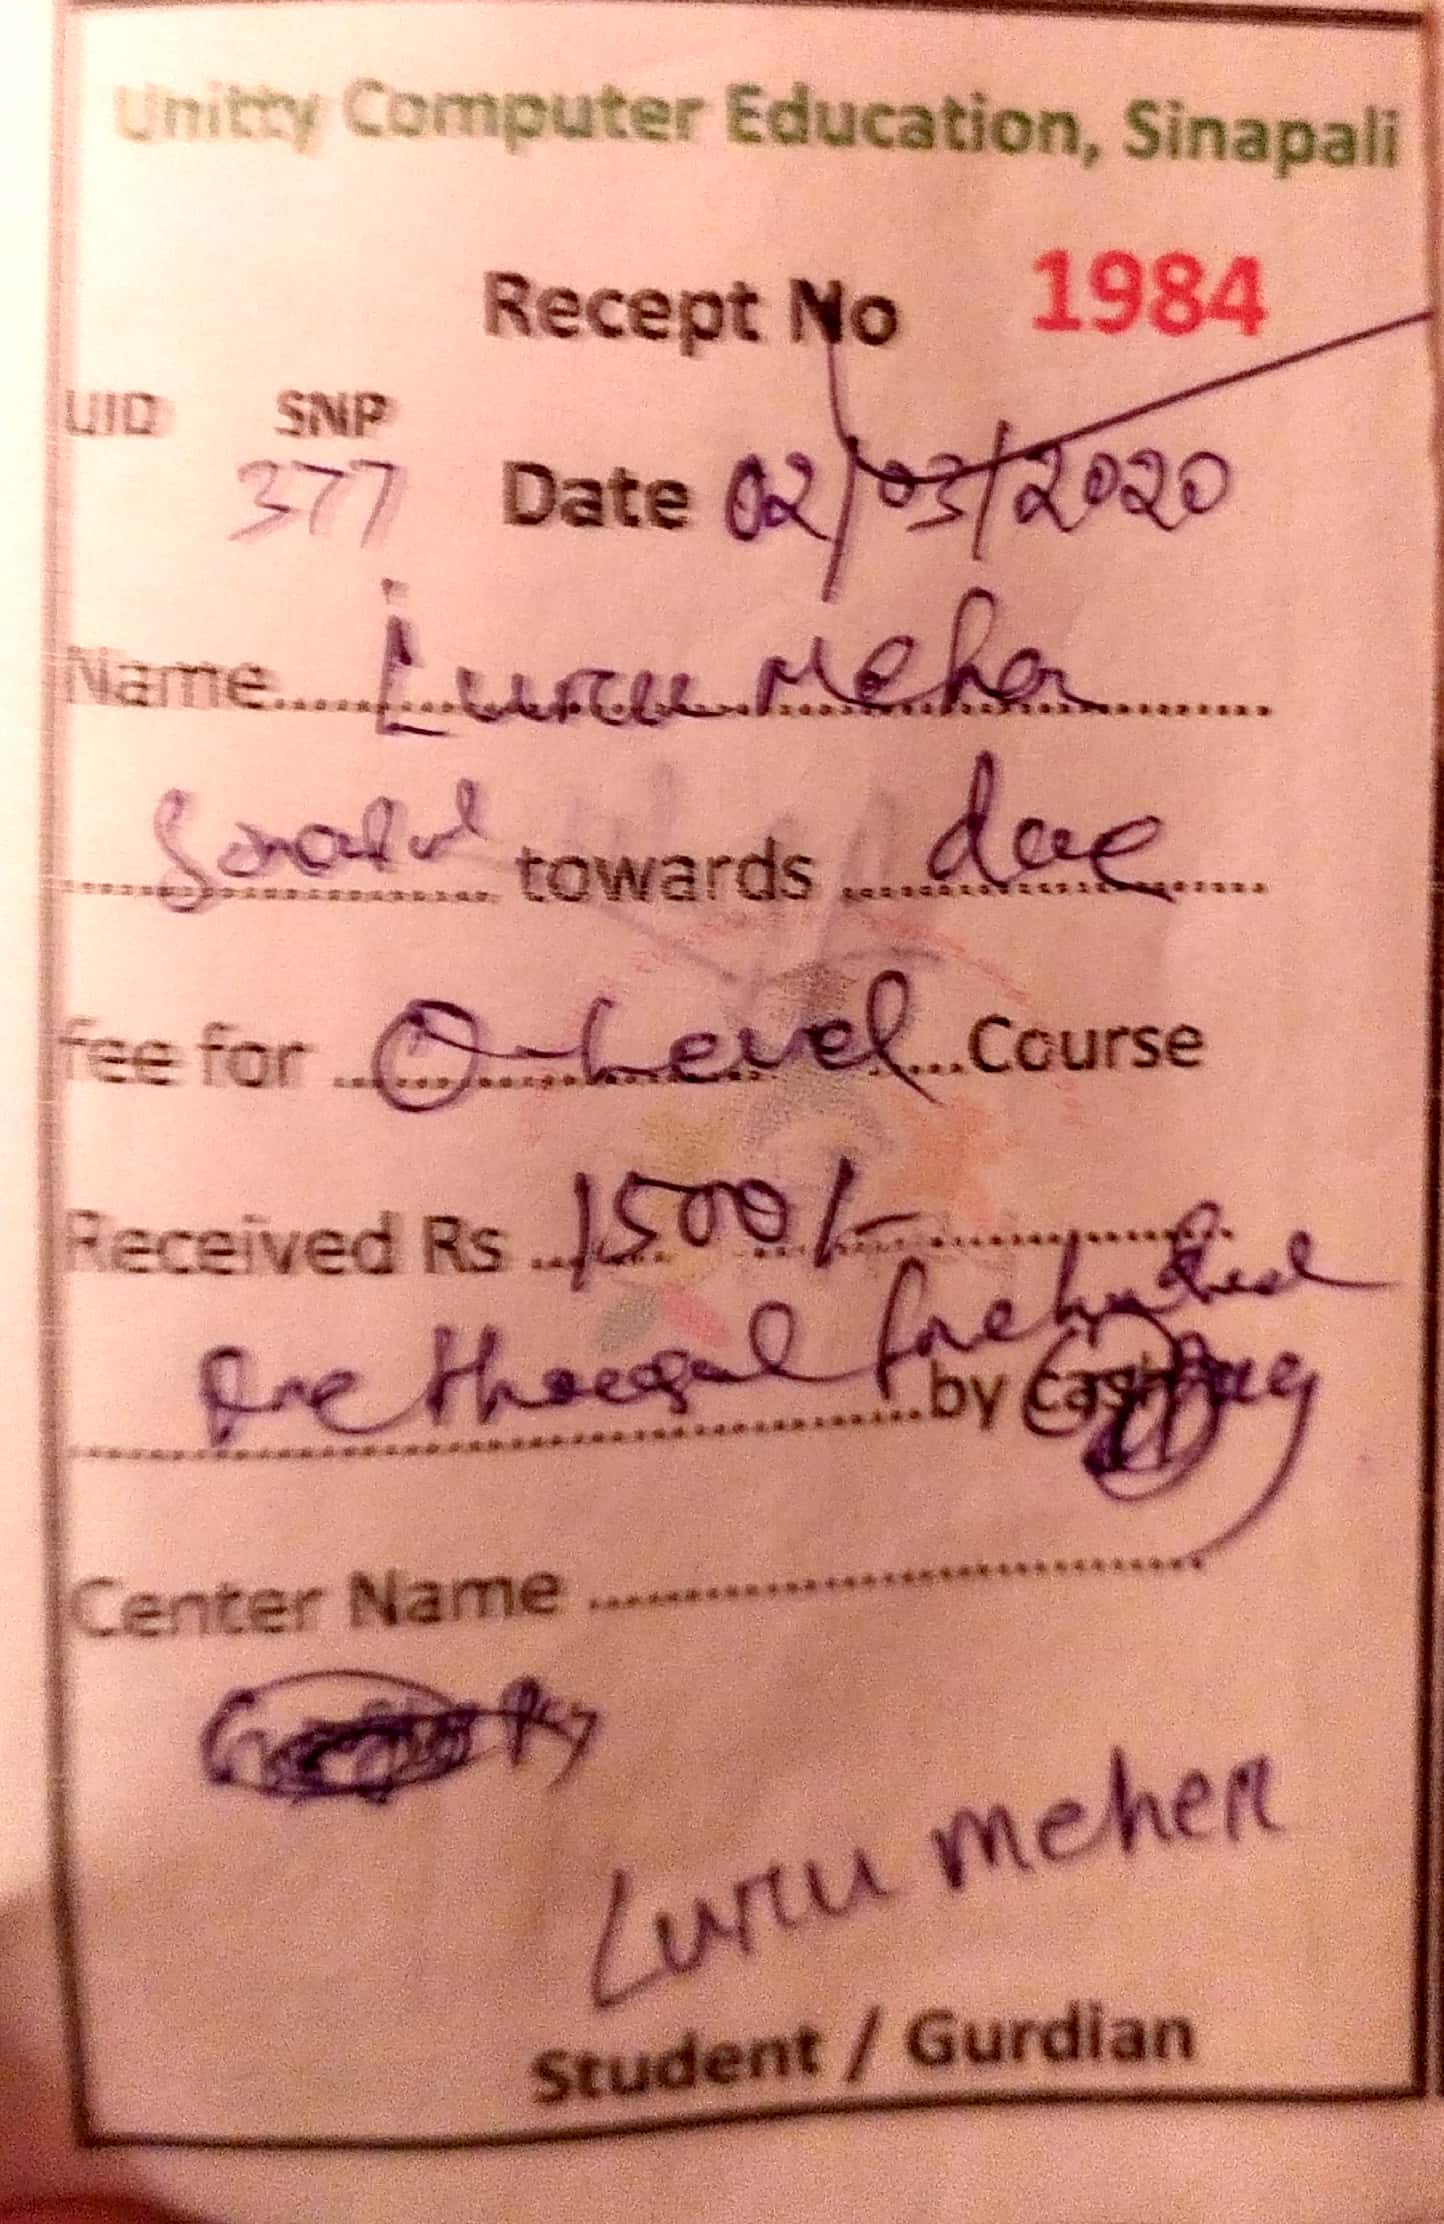 Unitty Computer Education, Sinapali
Recept No 1984
UID SNP
377 Date 02/03/2020
Name.... Luru Meher
towards due
fee for O-Level Course
Received Rs 1500/-
One thousand five hundred
by cash
Center Name
Luru meher
Student / Gurdian